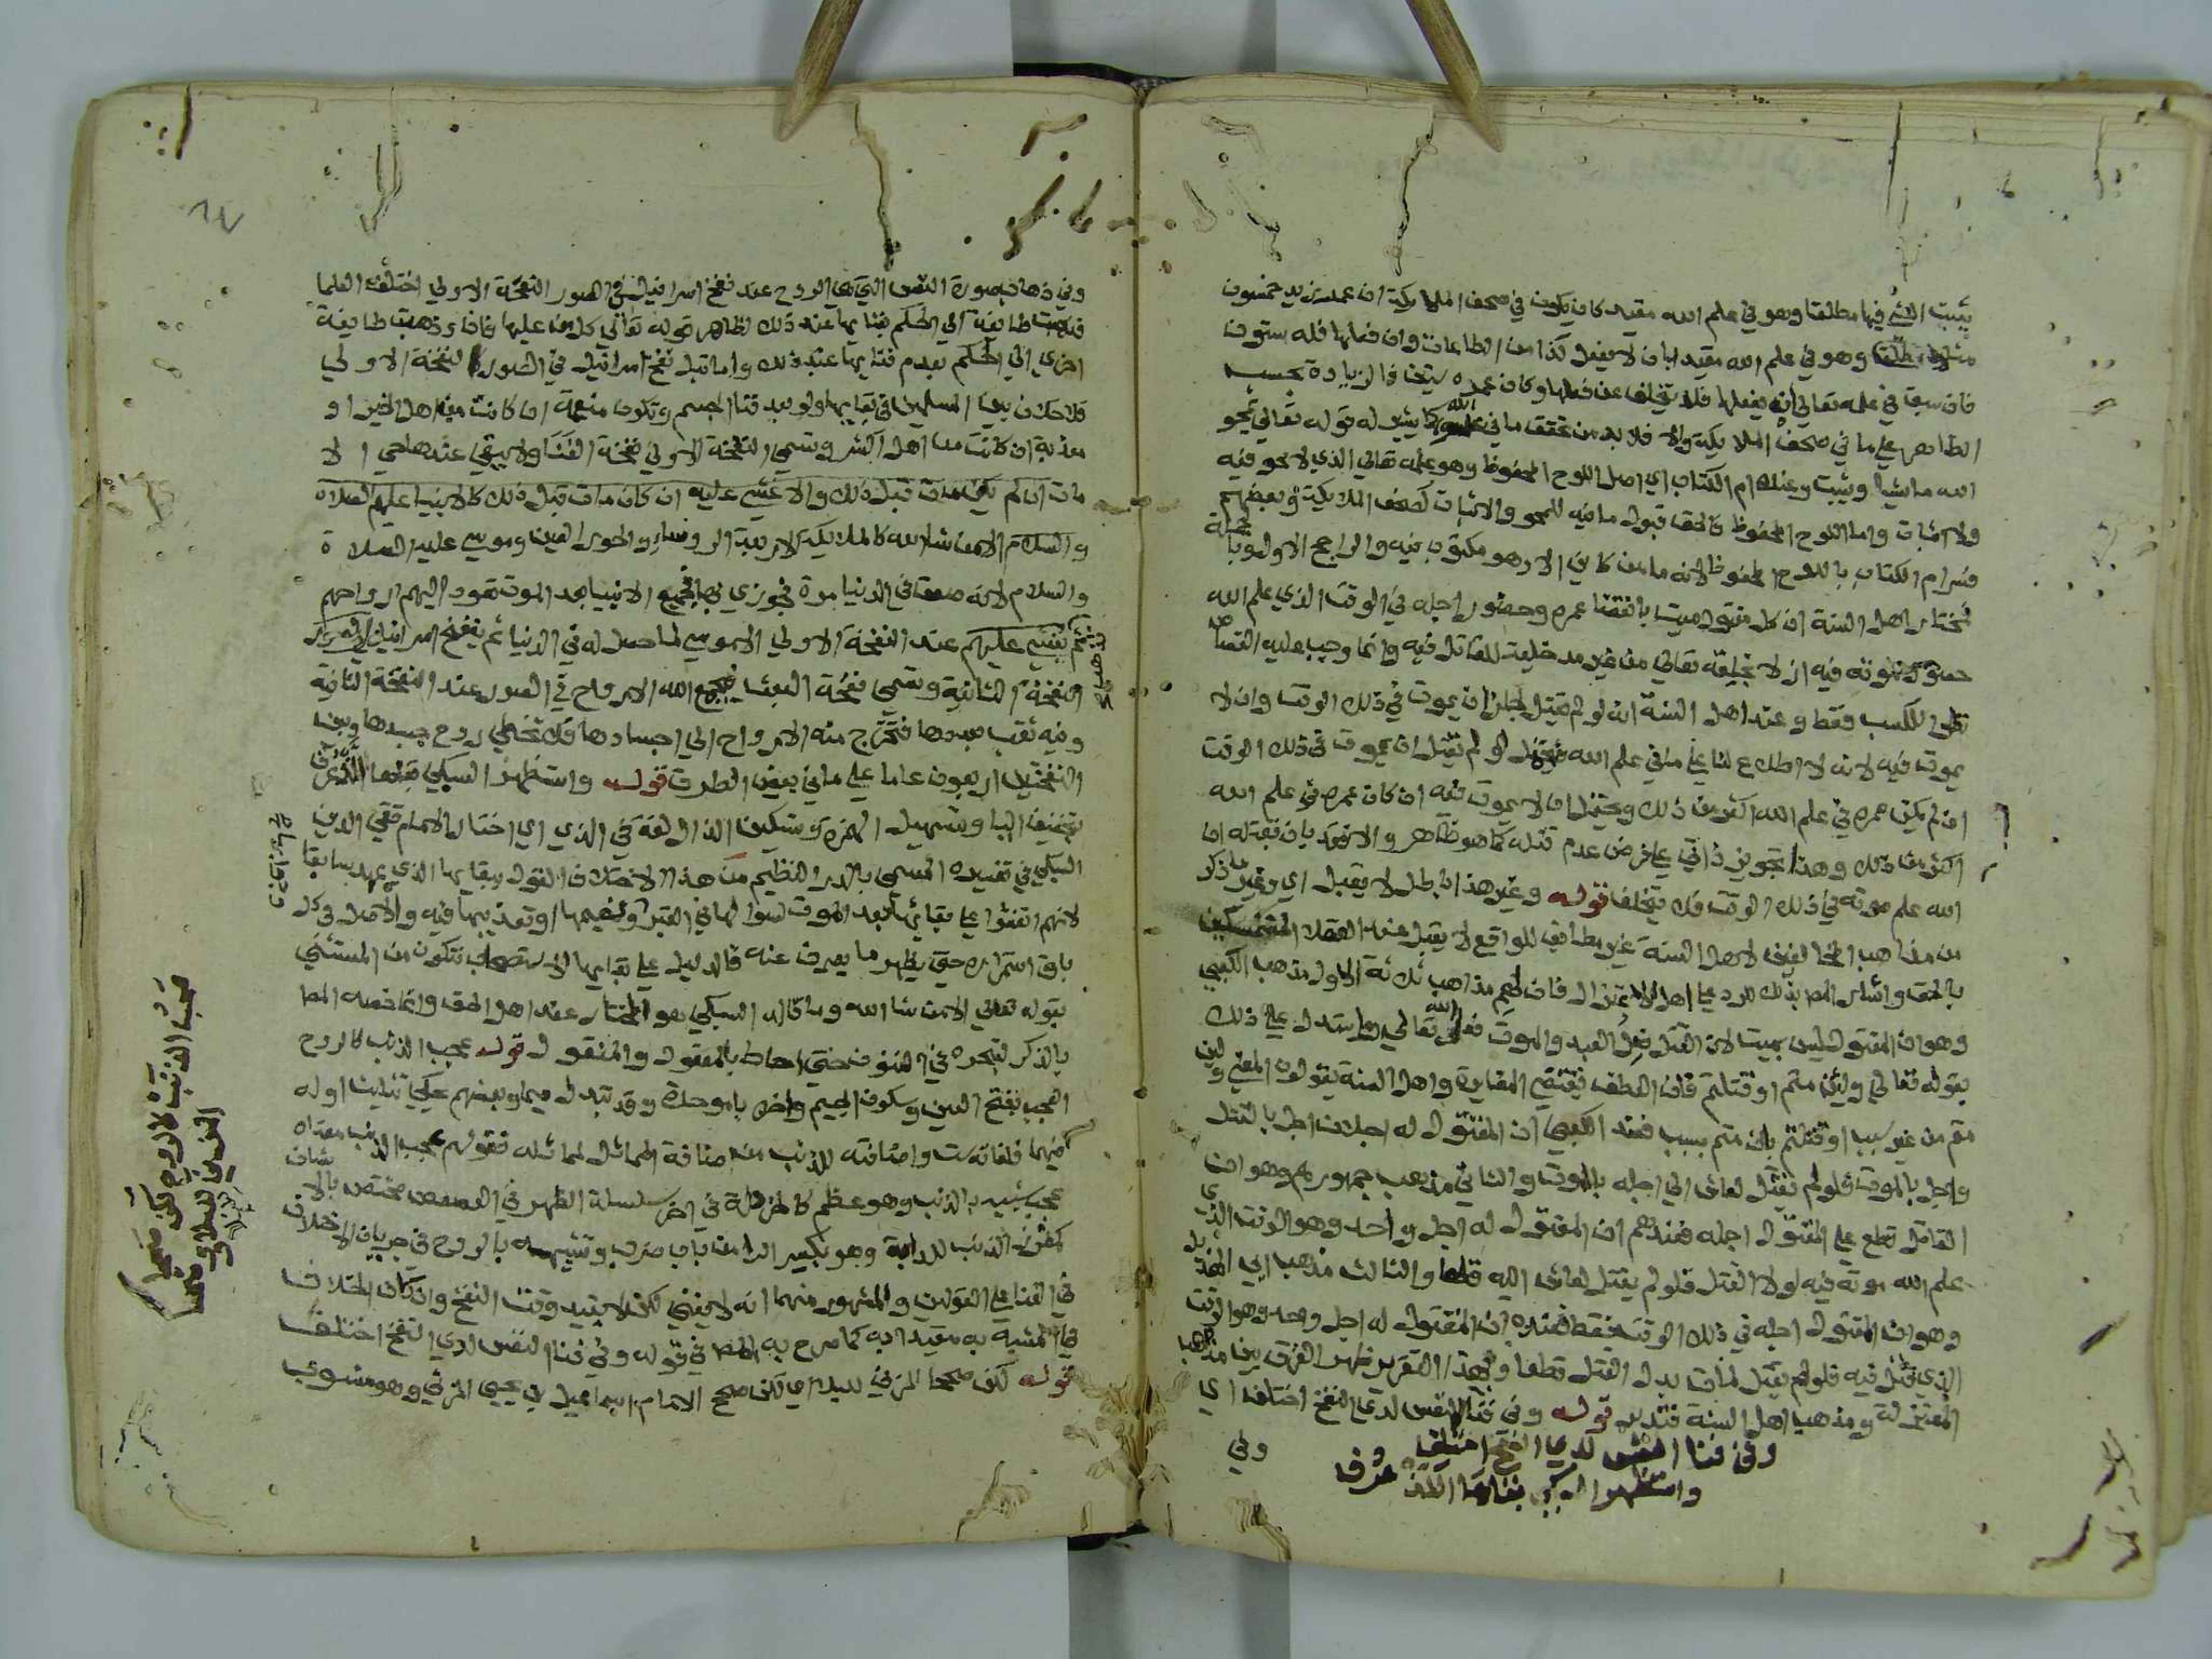 يثبت الشئ فيها مطلقا وهو في علم الله مقيد كان يكون في صحف الملايكة ان عمر زيد خمسون
مثلا مطلقا وهو في علم الله مقيد بان لا يفعل كذا من الطاعات وان فعلها فله ستون
فان سبق في علمه تعالي انه يفعلها فلا يتخلف عن فعلها وكان عمره ستين فالزيادة بحسب
الظاهر علي ما في صحف الملايكة والا فلا بد من تحقق ما في علم الله كما يشير له قوله تعالي يمحو
الله ما يشا ويثبت وعنده ام الكتاب اي اصل اللوح المحفوظ وهو علمه تعالي الذي لا محو فيه
ولا اثبات واما اللوح المحفوظ فالحق قبول ما فيه للمحو والاثبات كصحف الملايكة وبعضهم
فسر ام الكتاب باللوح المحفوظ لانه ما من كاين الا وهو مكتوب فيه والراجح الاول وبالجملة
فمختار اهل السنة ان كل مقتول ميت بانقضا عمره وحضور اجله في الوقت الذي علم الله
حصول موته فيه ازلا بخلقه تعالي من غير مدخلية للقاتل فيه وانما وجب عليه القصاص
نظرا للكسب فقط وعند اهل السنة انه لو لم يقتل لجاز ان يموت في ذلك الوقت وان لا
يموت فيه لانه لا اطلاع لنا علي ما في علم الله فيحتمل لو لم يقتل ان يموت في ذلك الوقت
ان لم يكن عمره في علم الله اكثر من ذلك ويحتمل ان لا يموت فيه ان كان عمره في علم الله
اكثر من ذلك وهذا تجويز ذاتي علي فرض عدم قتله كما هو ظاهر والا فبعد بان قتله ان
الله علم موته في ذلك الوقت فلا تخلف قوله وغير هذا باطل لا يقبل اي وغير ما ذكر
من مذاهب المخالفين لاهل السنة غير مطابق للواقع لا يقبل عند العقلا المتمسكين
بالحق واشار المص بذلك للرد علي اهل الاعتزال فان لهم مذاهب ثلاثة الاول مذهب الكعبي
وهو ان المقتول ليس بميت لان القتل فعل العبد والموت فعل الله تعالي واستدل علي ذلك
بقوله تعالي ولين متم او قتلتم فان العطف يقتضي المغايرة واهل السنة يقولون المعني ولين
متم من غير سبب او قتلتم بان متم بسبب فعند الكعبي ان المقتول له اجلان اجل بالقتل
واجل بالموت فلو لم يقتل لعاش الي اجله بالموت والثاني مذهب جمهورهم وهو ان
القاتل قطع علي المقتول اجله فعندهم ان المقتول له اجل واحد وهو الوقت الذي
علم الله موته فيه لولا القتل فلو لم يقتل لعاش اليه قطعا والثالث مذهب ابي الهذيل
وهو ان المقتول اجله في ذلك الوقت فقط فعنده ان المقتول له اجل واحد وهو الوقت
الذي قتل فيه فلو لم يقتل لمات بدل القتل قطعا وبهذا التقرير ظهر الفرق بين مذاهب
المعتزلة ومذهب اهل السنة فتدبر قوله وفي فنا النفس لدي النفخ اختلف اي
وفي فنا النفس لدي النفخ اختلف
واستظهر السبكي بقاها اللذ عرف
وفي
وفي ذهاب صورة النفس التي هي الروح عند نفخ اسرافيل في الصور النفخة الاولي اختلف العلما
فذهبت طايفة الي الحكم بفنايها عند ذلك لظاهر قوله تعالي كل من عليها فان وذهبت طايفة
اخري الي الحكم بعدم فنايها عند ذلك واما قبل نفخ اسرافيل في الصور النفخة الاولي
فلا خلاف بين المسلمين في بقايها ولو بعد فنا الجسم وتكون منعمة ان كانت من اهل الخير او
معذبة ان كانت من اهل الشر وتسمي النفخة الاولي نفخة الفنا ولا يبقي عندها حي الا
مات ان لم يكن مات قبل ذلك والا غشي عليه ان كان مات قبل ذلك كالانبيا عليهم الصلاة
والسلام الا من شا الله كالملايكة الاربعة الروسا والحور العين وموسي عليه الصلاة
والسلام لانه صعق في الدنيا مرة فجوزي بها فجميع الانبيا بعد الموت تعود اليهم ارواحهم
ثم يغشي عليهم عند النفخة الاولي الا موسي لما حصل له في الدنيا ثم ينفخ اسرافيل في الصور
النفخة الثانية وتسمي نفخة البعث فيجمع الله الارواح في الصور عند النفخة الثانية
وفيه ثقب بعددها فتخرج منه الارواح الي اجسادها فلا تخطي روح جسدها وبين
النفختين اربعون عاما علي ما في بعض الطرق قوله واستظهر السبكي بقاها اللذ عرف
بتخفيف اليا وتسهيل الهمزة وتسكين الذال لغة في الذي اي اختار الامام تقي الدين
السبكي في تفسيره المسمي بالدر النظيم من هذا الاختلاف القول ببقايها الذي عهد سابقا
لانهم اتفقوا علي بقايها بعد الموت لسوالها في القبر وتنعيمها او تعذيبها فيه والاصل في كل
باق استمراره حتي يظهر ما يصرف عنه فالدليل علي بقايها الاستصحاب فتكون من المستثني
بقوله تعالي الا من شا الله وما قاله السبكي هو المختار عند اهل الحق وانما خصه المص
بالذكر لتبحره في الفنون حتي احاط بالمعقول والمنقول قوله عجب الذنب كالروح
العجب بفتح العين وسكون الجيم واخره باموحدة وقد تبدل ميما وبعضهم حكي تثليث اوله
فيهما فلغاته ست واضافته للذنب من اضافة المماثل لمماثله فقولهم عجب الذنب معناه
عجب شبيه بالذنب وهو عظم كالخردلة في اخر سلسلة الظهر في العصعص مختص بالانسان
كمغرز الذنب للدابة وهو بكسر الرا من باب ضرب وتشبيهه بالروح في جريان الاختلاف
في الفنا علي القولين والمشهور منهما انه لا يفني لكن لا بقيد وقت النفخ وان كان الخلاف
في المشبه به مقيدا به كما صرح به المص في قوله وفي فنا النفس لدي النفخ اختلف
قوله لكن صححا المزني للبلا اي لكن صحح الامام اسماعيل بن يحيي المزني وهو منسوب
عجب الذنب كالروح لكن صححا
المزني للبلا ووضحا